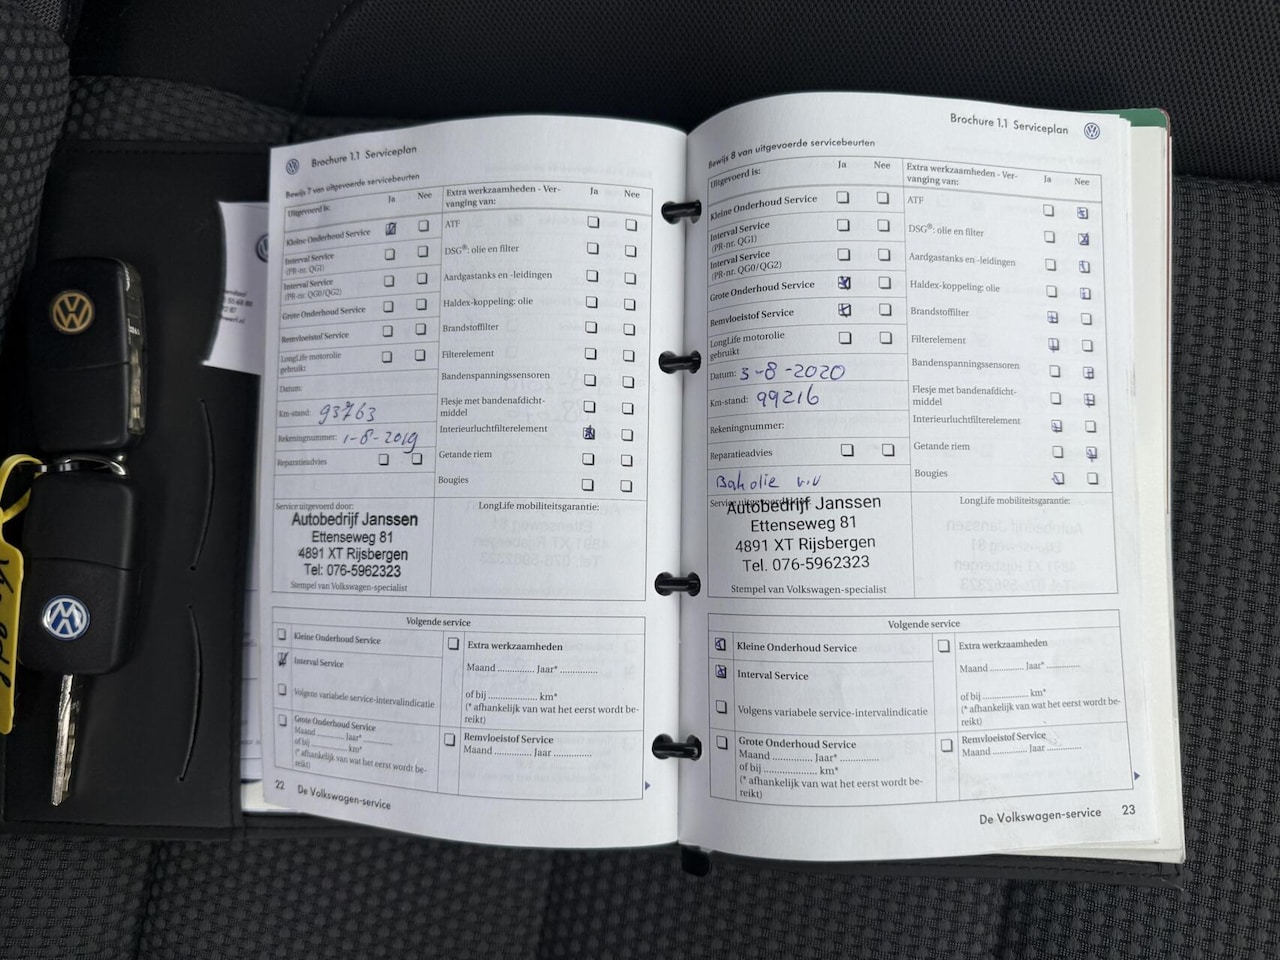 Brochure 1.1 Serviceplan
Bewijs 7 van uitgevoerde servicebeurten
Uitgevoerd is:
Ja
Nee
Kleine Onderhoud Service
Interval Service
(PR-nr. QG1)
Interval Service
(PR-nr. QG0/QG2)
Grote Onderhoud Service
Remvloeistof Service
LongLife motorolie
gebruikt
Datum:
Km-stand: 93763
Rekeningnummer: 1-8-2019
Reparatieadvies
Extra werkzaamheden - Ver-
vanging van:
Ja
Nee
ATF
DSG®: olie en filter
Aardgastanks en -leidingen
Haldex-koppeling: olie
Brandstoffilter
Filterelement
Bandenspanningssensoren
Flesje met bandenafdicht-
middel
Interieurluchtfilterelement
Getande riem
Bougies
Service uitgevoerd door:
Autobedrijf Janssen
Ettenseweg 81
4891 XT Rijsbergen
Tel: 076-5962323
Stempel van Volkswagen-specialist
LongLife mobiliteitsgarantie:
Volgende service
Kleine Onderhoud Service
Interval Service
Volgens variabele service-intervalindicatie
Grote Onderhoud Service
Maand .............. Jaar* ..............
of bij .................... km*
(* afhankelijk van wat het eerst wordt be-
reikt)
Extra werkzaamheden
Maand .............. Jaar* ..............
of bij .................... km*
(* afhankelijk van wat het eerst wordt be-
reikt)
Remvloeistof Service
Maand .............. Jaar ..............
22 De Volkswagen-service
Brochure 1.1 Serviceplan
Bewijs 8 van uitgevoerde servicebeurten
Uitgevoerd is:
Ja
Nee
Kleine Onderhoud Service
Interval Service
(PR-nr. QG1)
Interval Service
(PR-nr. QG0/QG2)
Grote Onderhoud Service
Remvloeistof Service
LongLife motorolie
gebruikt
Datum: 3-8-2020
Km-stand: 99216
Rekeningnummer:
Reparatieadvies
Bak olie v.v
Extra werkzaamheden - Ver-
vanging van:
Ja
Nee
ATF
DSG®: olie en filter
Aardgastanks en -leidingen
Haldex-koppeling: olie
Brandstoffilter
Filterelement
Bandenspanningssensoren
Flesje met bandenafdicht-
middel
Interieurluchtfilterelement
Getande riem
Bougies
Service uitgevoerd door:
Autobedrijf Janssen
Ettenseweg 81
4891 XT Rijsbergen
Tel. 076-5962323
Stempel van Volkswagen-specialist
LongLife mobiliteitsgarantie:
Volgende service
Kleine Onderhoud Service
Interval Service
Volgens variabele service-intervalindicatie
Grote Onderhoud Service
Maand .............. Jaar* ..............
of bij .................... km*
(* afhankelijk van wat het eerst wordt be-
reikt)
Extra werkzaamheden
Maand .............. Jaar* ..............
of bij .................... km*
(* afhankelijk van wat het eerst wordt be-
reikt)
Remvloeistof Service
Maand .............. Jaar ..............
De Volkswagen-service 23